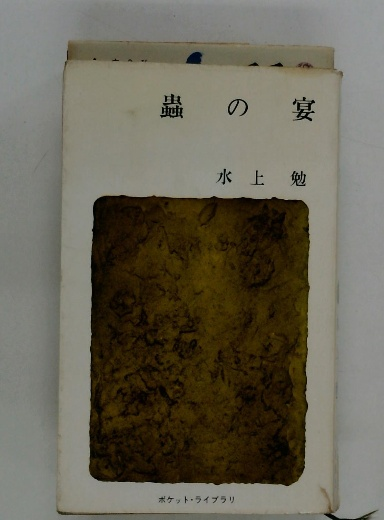 蟲の宴
水上勉
ポケット・ライブラリ